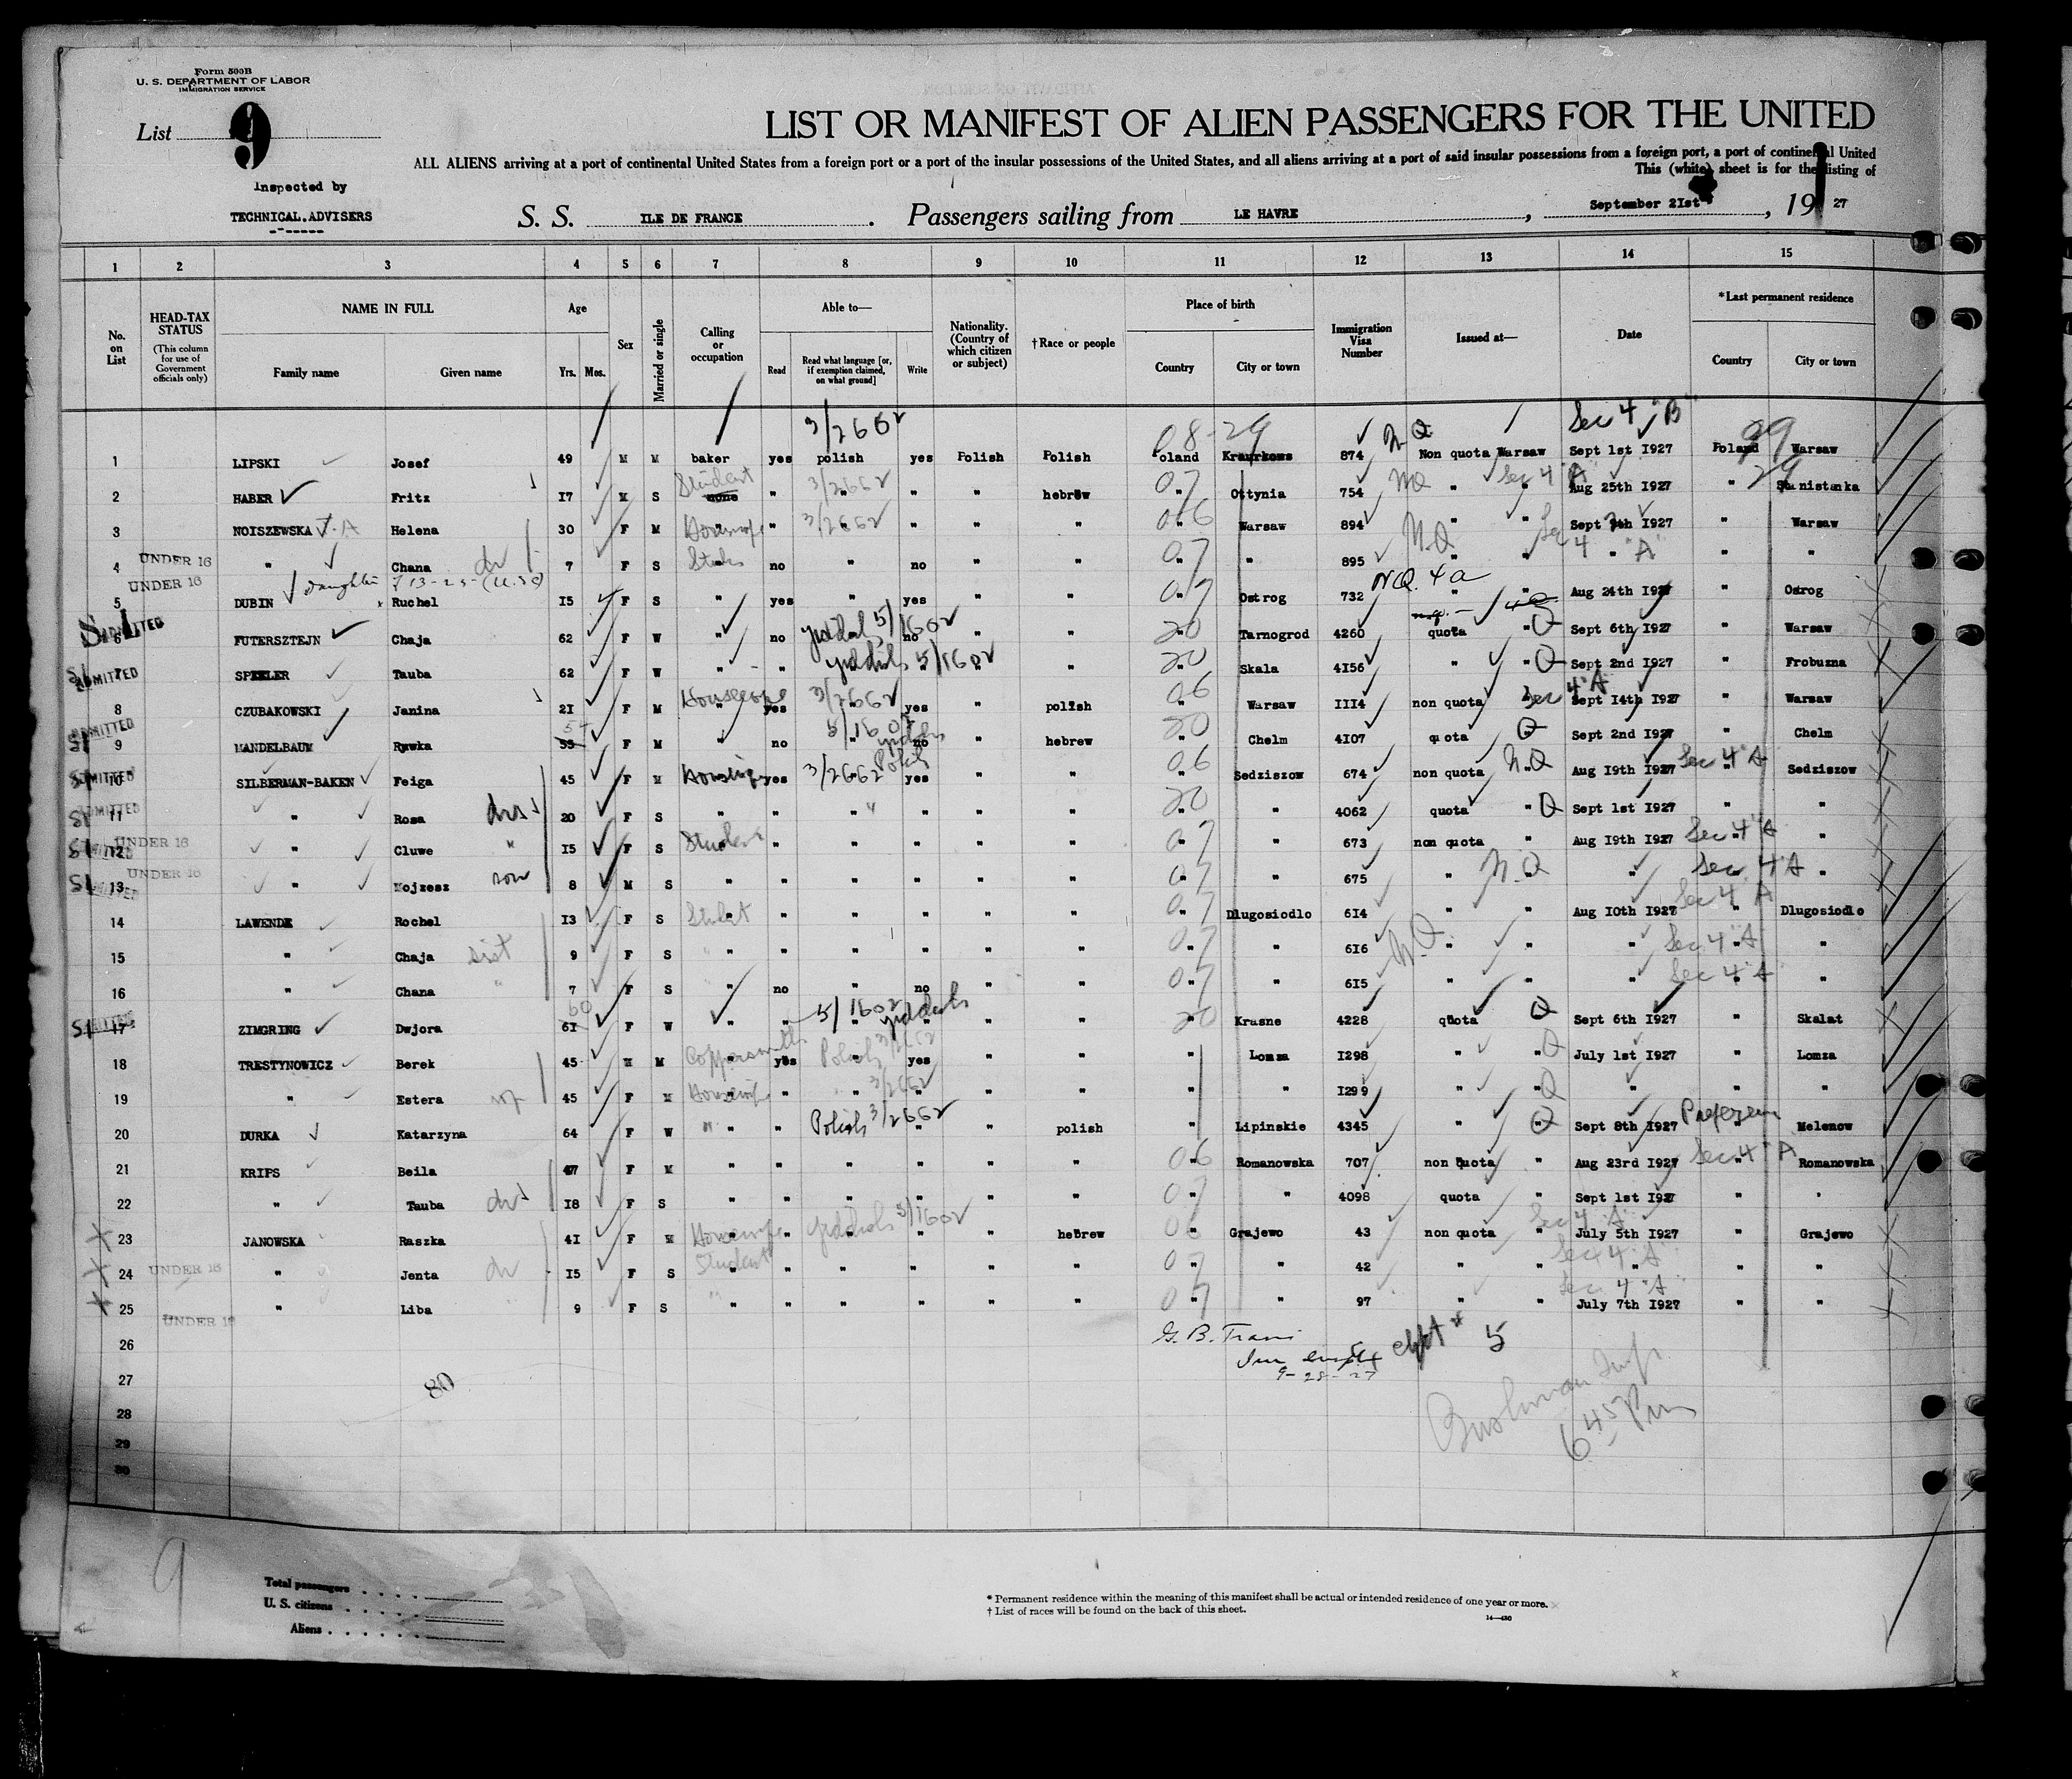 Form 500B
U. S. DEPARTMENT OF LABOR
IMMIGRATION SERVICE
List 9
LIST OR MANIFEST OF ALIEN PASSENGERS FOR THE UNITED
ALL ALIENS arriving at a port of continental United States from a foreign port or a port of the insular possessions of the United States, and all aliens arriving at a port of said insular possessions from a foreign port, a port of continental United
This (white) sheet is for the listing of
Inspected by
TECHNICAL.ADVISERS
S. S. ILE DE FRANCE. Passengers sailing from LE HAVRE, September 21st, 1927
1 2 3 4 5 6 7 8 9 10 11 12 13 14 15
No. on List
HEAD-TAX STATUS (This column for use of Government officials only)
NAME IN FULL Family name Given name
Age Yrs. Mos.
Sex
Married or single
Calling or occupation
Able to— Read Read what language [or, if exemption claimed, on what ground] Write
Nationality. (Country of which citizen or subject)
†Race or people
Place of birth Country City or town
Immigration Visa Number
Issued at—
Date
*Last permanent residence Country City or town
3/2662 08-29 N Q Sec 4 "B" 99
1 LIPSKI Josef 49 M M baker yes polish yes Polish Polish oland 874 Non quota Warsaw Sept 1st 1927 Poland Warsaw
2 HABER Fritz 17 M S none Student " 3/2662 " " " hebrew 07 Ottynia 754 NQ " " Sec 4 "A" Aug 25th 1927 "
3 NOISZEWSKA Helena 30 F M Housewife " 3/2662 " " " 06 Warsaw 894 " " Sept 1927 " Warsaw
UNDER 16
4 " Chana 7 F S no no " " 07 " 895 N.Q " " Sec 4 "A" " "
UNDER 16 daughter 7 13-25-
5 DUBIN Ruchel 15 F S " yes yes " " 07 Ostrog 732 NQ. 4a Aug 24th 1927 " Ostrog
6 FUTERSZTEJN Chaja 62 F W " no yiddish 5/1602 no " " 20 Tarnogrod 4260 quota " Q Sept 6th 1927 " Warsaw
SI ADMITTED 7 Tauba 62 F W " " yiddish 5/1602 " " 20 Skala 4156 " " Q Sept 2nd 1927 " Frobuzna
8 CZUBAKOWSKI Janina 21 F M Housewife yes 3/2662 yes " polish 06 Warsaw 1114 non quota " Sec 4 "A" Sept 14th 1927 " Warsaw
SI ADMITTED 9 MANDELBAUM Rywka F M " no 5/1602 yiddish no " hebrew 20 Chelm 4107 quota Q Sept 2nd 1927 " Chelm
SI ADMITTED 10 SILBERMAN-BAKEN Feiga 45 F M Housewife yes 3/2662 Polish yes " " 06 Sedziszow 674 non quota N.Q Aug 19th 1927 Sec 4 "A" Sedziszow
SI ADMITTED 11 " Rosa 20 F S " " " " " " 20 " 4062 quota " Q Sept 1st 1927 " "
SI UNDER 16 12 " Cluwe " 15 F S Student " " " " " 07 " 673 non quota " Aug 19th 1927 Sec 4 "A" "
SI UNDER 16 13 " Mojzesz son 8 M S " " " " " " 07 " 675 " N.Q " Sec 4 "A" "
14 LAWENDE Rochel 13 F S Student " " " " " 07 Dlugosiodlo 614 " " Aug 10th 1927 Sec 4 "A" Dlugosiodlo
15 " Chaja sist 9 F S " " " " " " 07 " 616 N.Q " " " Sec 4 "A" "
16 " Chana " 7 F S " no " no " " 07 " 615 " " " Sec 4 "A" "
SI 17 ZIMGRING Dwjora 61 60 F W " " 5/1602 yiddish " " " 20 Krasne 4228 quota Q Sept 6th 1927 " Skalat
18 TRESTYNOWICZ Berek 45 M M Coppersmith yes Polish 3/2662 yes " " " Lomza 1298 " " Q July 1st 1927 " Lomza
19 " Estera wf 45 F M Housewife " " 3/2662 " " " " " 1299 " " Q " " "
20 DURKA Katarzyna 64 F W " " Polish 3/2662 " " polish " Lipinskie 4345 " Q Sept 8th 1927 " Melenow
21 KRIPS Beila 47 F M " " " " " " 06 Romanowska 707 non quota " Aug 23rd 1927 Sec 4 "A" Romanowska
22 " Tauba 18 F S " " " " " " 07 " 4098 quota " Sept 1st 1927 " "
23 JANOWSKA Raszka 41 F M Housewife " yiddish 5/1602 " " hebrew 06 Grajewo 43 non quota " Sec 4 "A" July 5th 1927 " Grajewo
24 UNDER 16 " Jenta 15 F S Student " " " " " 07 " 42 " " Sec 4 "A" " " "
25 " Liba 9 F S " " " " " " 07 " 97 " " Sec 4 "A" July 7th 1927 " "
UNDER 16
26
27
28
29
30
G. B. Travi
9-28-27
5
80
6 45 Pm
9
Total passengers
U. S. citizens
Aliens
* Permanent residence within the meaning of this manifest shall be actual or intended residence of one year or more.
† List of races will be found on the back of this sheet.